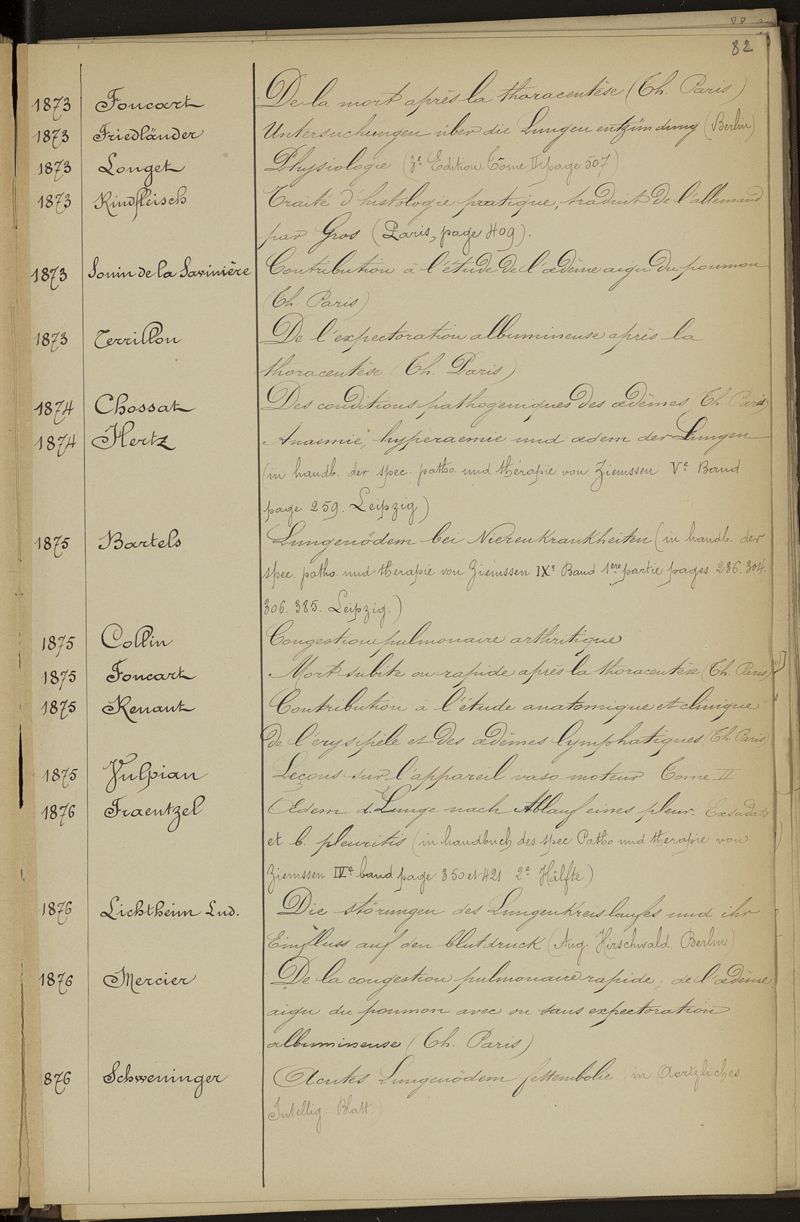 82
1873 Foucart De la mort après la thoracentèse (Th. Paris)
1873 Friedländer Untersuchungen über die Lungenentzündung (Berlin)
1873 Longet Physiologie (3e Edition Tome II page 507)
1873 Rindfleisch Traité d'histologie pratique, traduit de l'allemand
par Gros (Paris, page 409).
1873 Louin de la Savinière Contribution à l'étude de l'œdème aigu du poumon
(Th. Paris)
1873 Terrillon De l'expectoration albumineuse après la
thoracentèse (Th. Paris)
1874 Chossat Des conditions pathogeniques des œdèmes (Th Paris)
1874 Hertz Anaemie, hyperaemie und œdem der Lungen
(in handb. der spec. patho. und thérapie von Ziemssen Ve Band
page 259. Leipzig)
1875 Bartels Lungenödem bei Nierenkrankheiten (in handb. der
spec. patho. und therapie von Ziemssen IXe Band 1ère partie pages 236. 304.
306. 385. Leipzig.)
1875 Collin Congestion pulmonaire arthritique
1875 Foucart Mort subite ou rapide après la thoracentèse (Th. Paris)
1875 Renaut Contribution à l'étude anatomique et clinique
de l'érysipèle et des œdèmes lymphatiques (Th. Paris)
1875 Vulpian Leçons sur l'appareil vaso moteur Tome II
1876 Fraentzel Œdem d. Lunge nach Ablauf eines pleur. Exsudats
et b. pleuritis (in handbuch des spec Patho und thérapie von
Ziemssen IVe band page 350 et 421 2e Hälfte)
1876 Lichtheim Lud. Die störungen des Lungenkreislaufes und ihr
Einfluss auf den blutdruck (Aug. Hirschwald. Berlin)
1876 Mercier De la congestion pulmonaire rapide, de l'œdème
aigu du poumon avec ou sans expectoration
albumineuse (Th. Paris)
876 Schweninger Acutes Lungenödem fettembolie (in Aertzliches
Intellig. Blatt.)